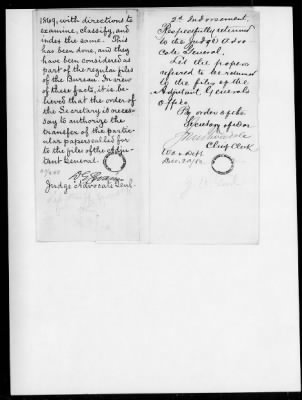 1869, with directions to
examine, classify, and
index the same. This
has been done, and they
have been considered as
part of the regular files
of the Bureau. In view
of these facts, it is be-
lieved that the order of
the Secretary is neces-
say to authorize the
transfer of the particu-
lar papers called for
to the files of the Adju-
tant General.
Judge Advocate Genl.
2d Indorsement.
Respectfully returned
to the Judge Advo
cate General.
Let the papers
referred to be returned
to the files of the
Adjutant General's
Office.
By order of the
Secretary of War
Chief Clerk
War Dept.